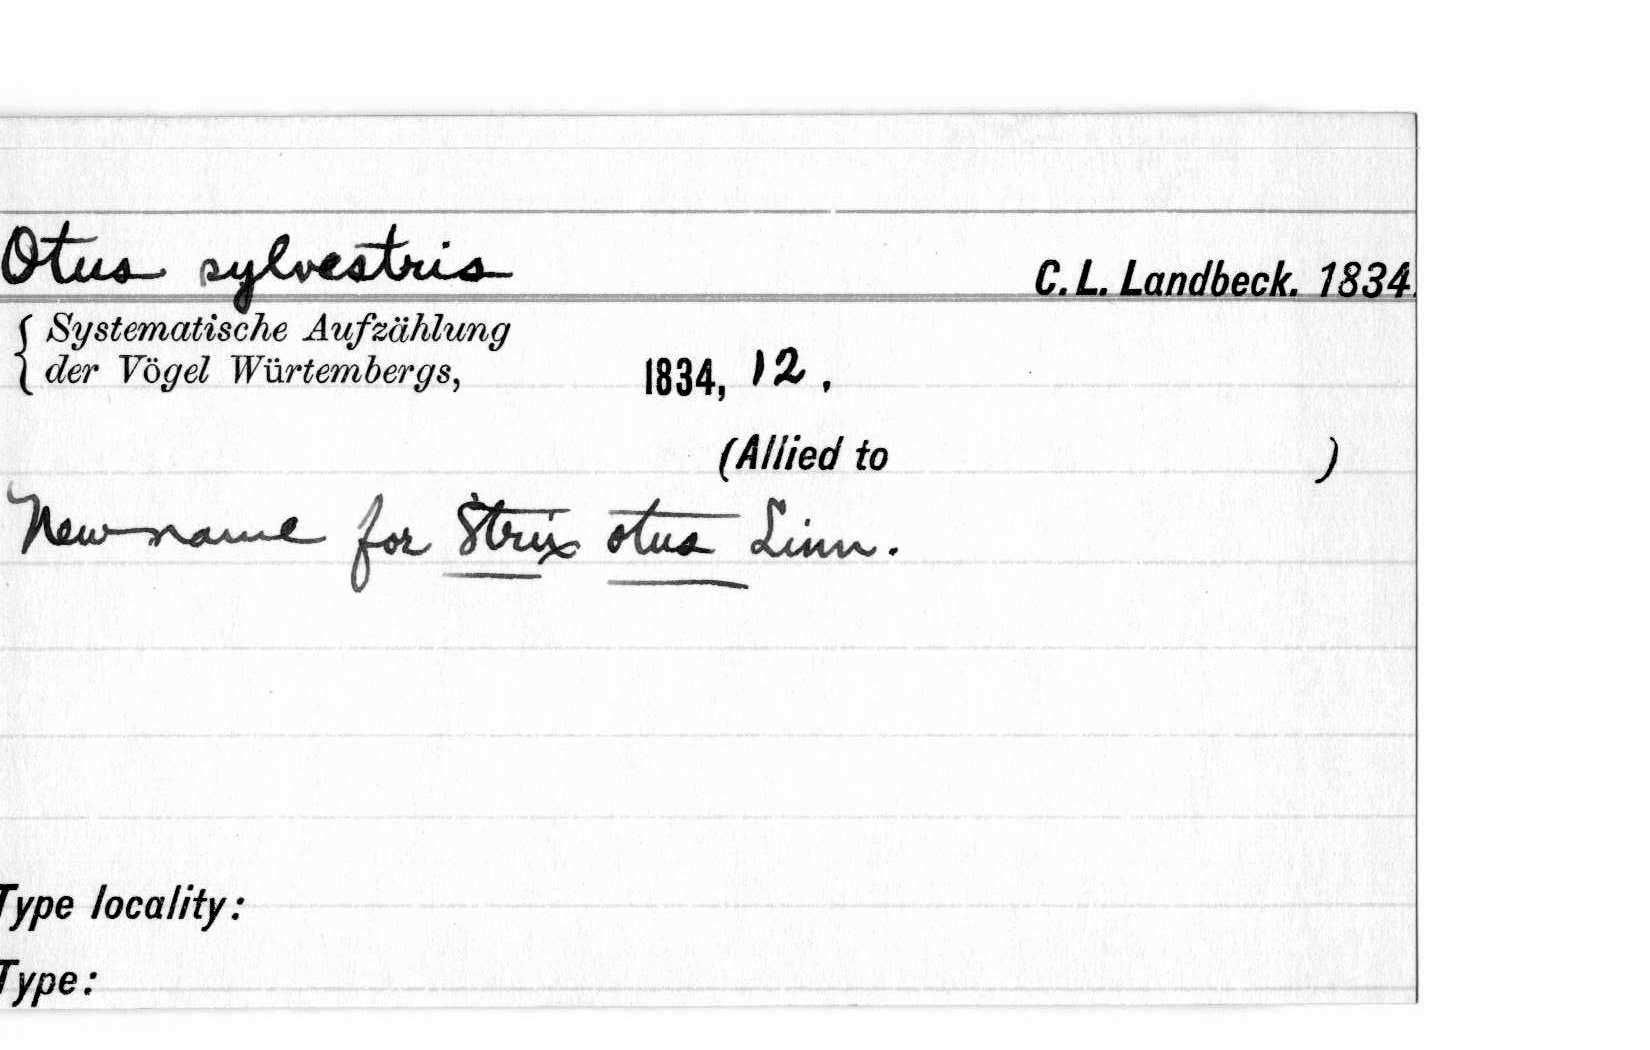 Otus sylvestris C. L. Landbeck. 1834.
{ Systematische Aufzählung
der Vögel Würtembergs, 1834, 12.
(Allied to )
New name for Strix otus Linn.
Type locality:
Type: